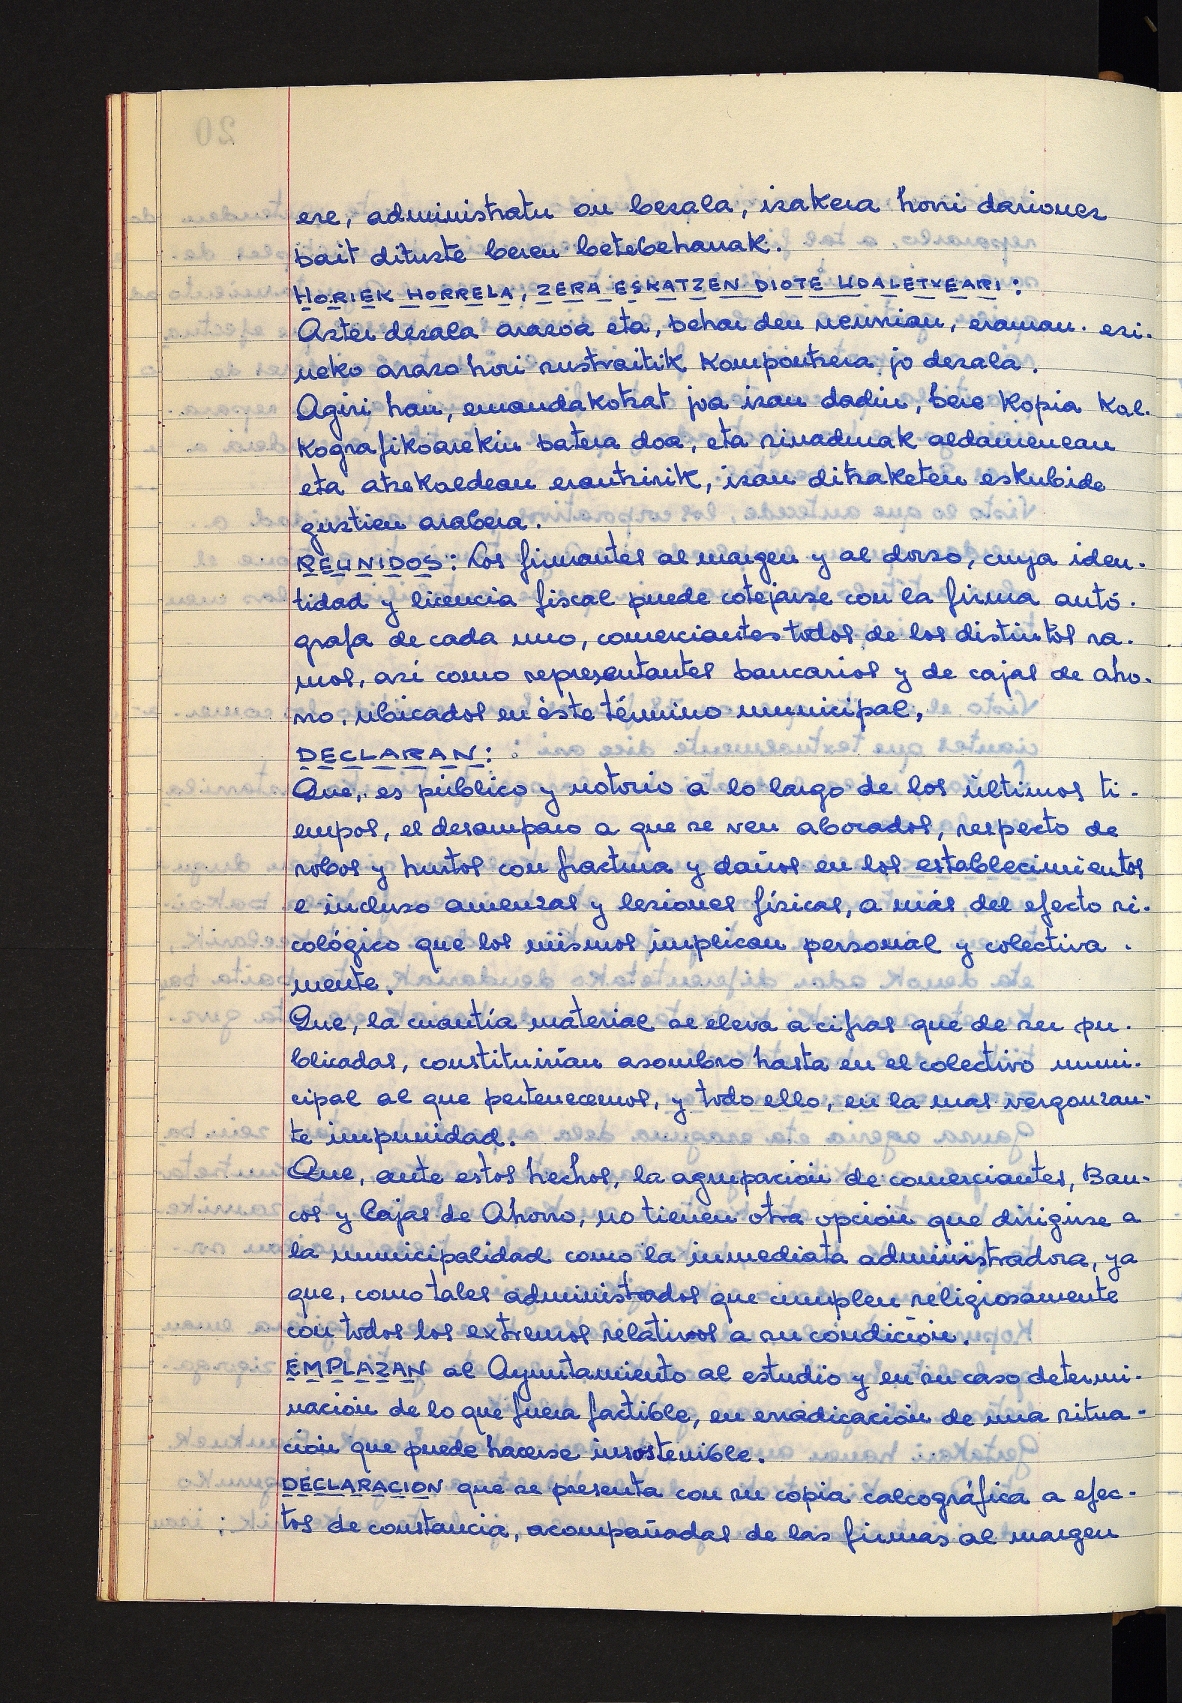 ere, administratu on bezala, izakera horri darionez
bait dituzte beren betebeharrak.
HORIEK HORRELA, ZERA ESKATZEN DIOTE UDALETXEARI:
Azter dezala arazoa eta, behar den neurrian, eraman. ezi-
neko arazo hori sustraitik konpontzera jo dezala.
Agiri hau, emandakotzat joa izan dadin, bere kopia kal-
kografikoarekin batera doa, eta sinadurak aldamenean
eta atzekaldean erantzirik, izan ditzaketen eskubide
guztien arabera.
REUNIDOS: Los firmantes al margen y al dorso, cuya iden-
tidad y licencia fiscal puede cotejarse con la firma autó-
grafa de cada uno, comerciantes todos de los distintos ra-
mos, así como representantes bancarios y de cajas de aho-
rro, ubicados en éste término municipal,
DECLARAN:
Que, es público y notorio a lo largo de los últimos ti-
empos, el desamparo a que se ven abocados, respecto de
robos y hurtos con fractura y daños en los establecimientos
e incluso amenzas y lesiones físicas, a más del efecto si-
cológico que los mismos implican personal y colectiva-
mente.
Que, la cuantía material se eleva a cifras que de ser pu-
blicadas, constituirían asombro hasta en el colectivo muni-
cipal al que pertenecemos, y todo ello, en la mas vergonzan-
te impunidad.
Que, ante estos hechos, la agrupación de comerciantes, Ban-
cos y Cajas de Ahorro, no tienen otra opción que dirigirse a
la municipalidad como la inmediata administradora, ya
que, como tales administrados que cumplen religiosamente
con todos los extremos relativos a su condición.
EMPLAZAN al Ayuntamiento al estudio y en su caso determi-
nación de lo que fuera factible, en erradicación de una situa-
ción que puede hacerse insostenible.
DECLARACION que se presenta con su copia calcográfica a efec-
tos de constancia, acompañadas de las firmas al margen